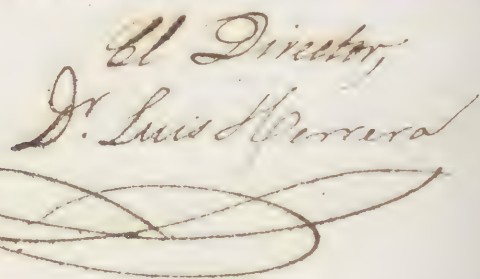 El Director,
Dr. Luis Herrera